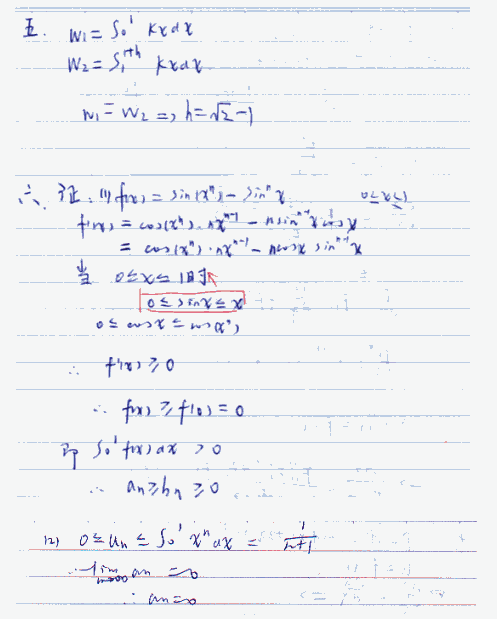 五. W₁ = ∫₀¹ kxdx
W₂ = ∫₁^{1+h} kxdx
W₁ = W₂ => h = √2 - 1
六、证: (1) f(x) = sin(xⁿ) - sinⁿx 0≤x≤1
f'(x) = cos(xⁿ)·nxⁿ⁻¹ - nsinⁿ⁻¹x cosx
= cos(xⁿ)·nxⁿ⁻¹ - ncosx sinⁿ⁻¹x
当 0≤x≤1时
0≤sinx≤x
0≤cosx≤cos(xⁿ)
∴ f'(x) ≥ 0
∴ f(x) ≥ f(0) = 0
即 ∫₀¹ f(x)dx > 0
∴ aₙ≥bₙ ≥0
(2) 0≤aₙ ≤ ∫₀¹ xⁿdx = 1/(n+1)
∴ lim_{n→∞} aₙ = 0
∴ aₙ=0